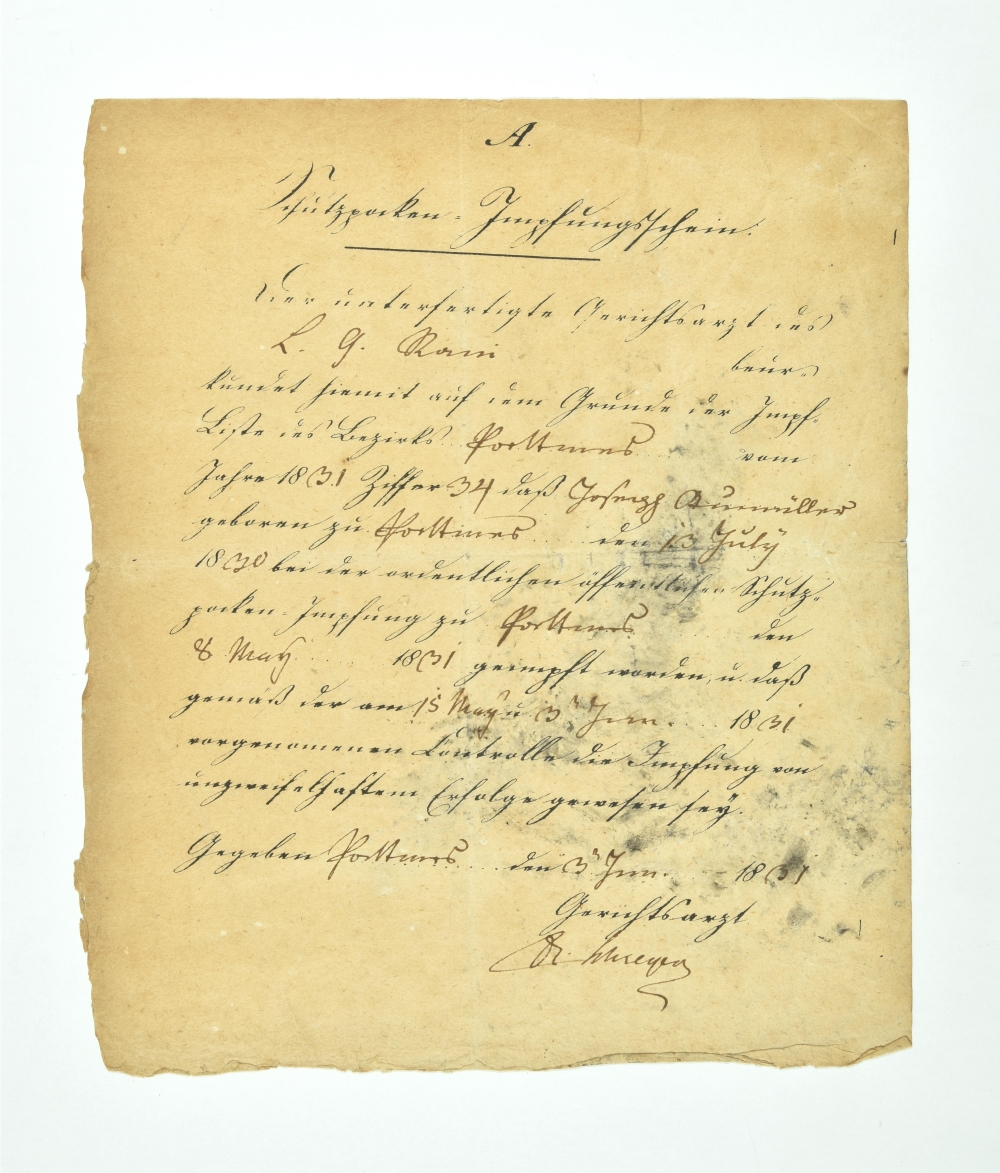 A.
Schutzpocken-Impfungsschein.
Der unterfertigte Gerichtsarzt des
L. G. Rain beur-
kundet hiemit auf dem Grunde der Impf-
Liste des Bezirks Poettmes vom
Jahre 1831 Ziffer 34 daß Joseph
geboren zu Poettmes den 13 July
1830 bei der ordentlichen öffentlichen Schutz-
pocken-Impfung zu Poettmes den
8 May 1831 geimpft worden, u. daß
gemäß der am 15 May u 3 Jun. 1831
vorgenomenen Controlle die Impfung von
unzweifelhaftem Erfolge gewesen sey.
Gegeben Poettmes den 3 Jun. 1831
Gerichtsarzt
Dr.